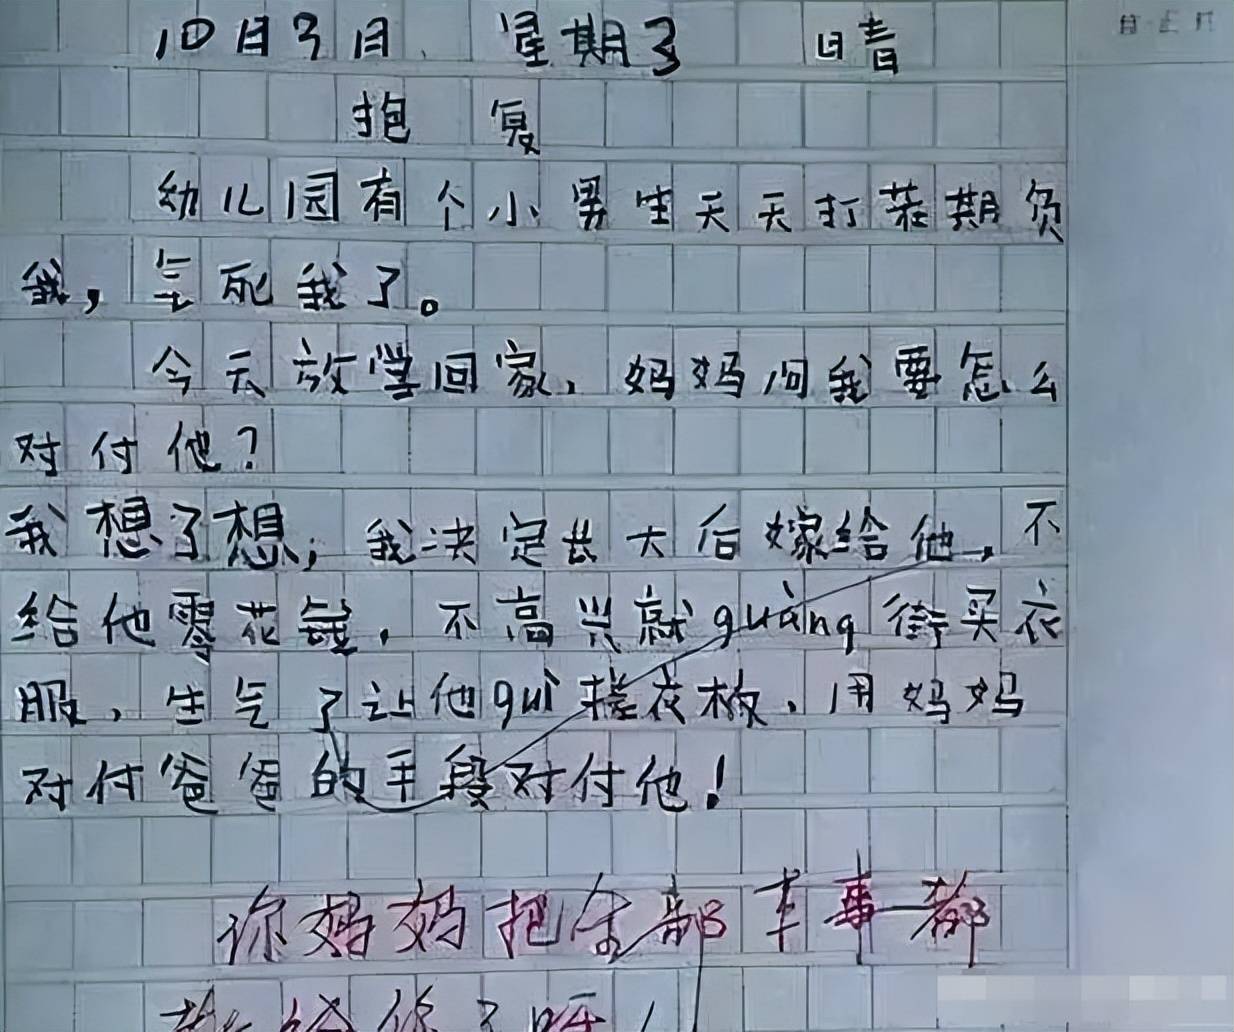 10月3日 星期3 晴
抱复
幼儿园有个小男生天天打我期负
我，气死我了。
今天放学回家，妈妈问我要怎么
对付他？
我想了想，我决定长大后嫁给他，不
给他零花钱，不高兴就guàng街买衣
服，生气了让他guì搓衣板，用妈妈
对付爸爸的手段对付他！
你妈妈把全部本事都
教给你了呀！